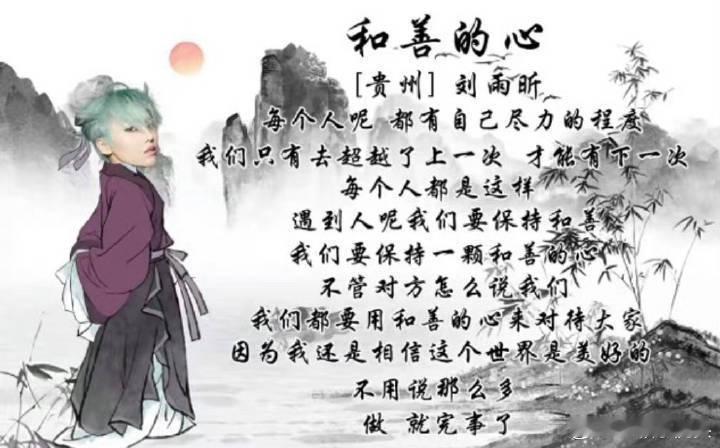 和善的心
[贵州] 刘雨昕
每个人呢 都有自己尽力的程度
我们只有去超越了上一次 才能有下一次
每个人都是这样
遇到人呢我们要保持和善
我们要保持一颗和善的心
不管对方怎么说我们
我们都要用和善的心来对待大家
因为我还是相信这个世界是美好的
不用说那么多
做 就完事了